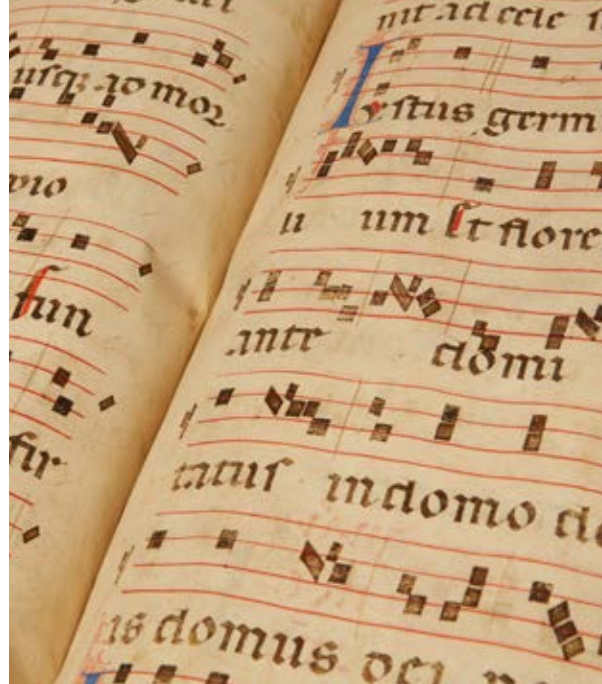 usqz ad mor
vio
fun
fir
nit ad cele
Iustus germ
u um Et flore
ante domi
tatus in domo
us domus dei